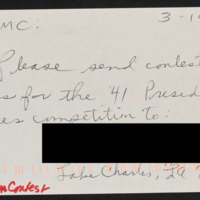 MC:
3-19
Please send contest
s for the '41 Presid
es competition to:
Lake Charles, LA
Contest